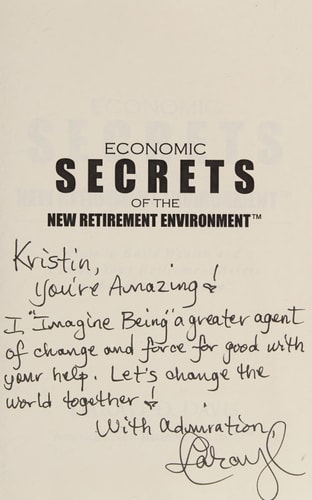 ECONOMIC
SECRETS
OF THE
NEW RETIREMENT ENVIRONMENT™
Kristin,
You're Amazing!
I "Imagine Being" a greater agent
of change and force for good with
your help. Let's change the
world together!
With Admiration,